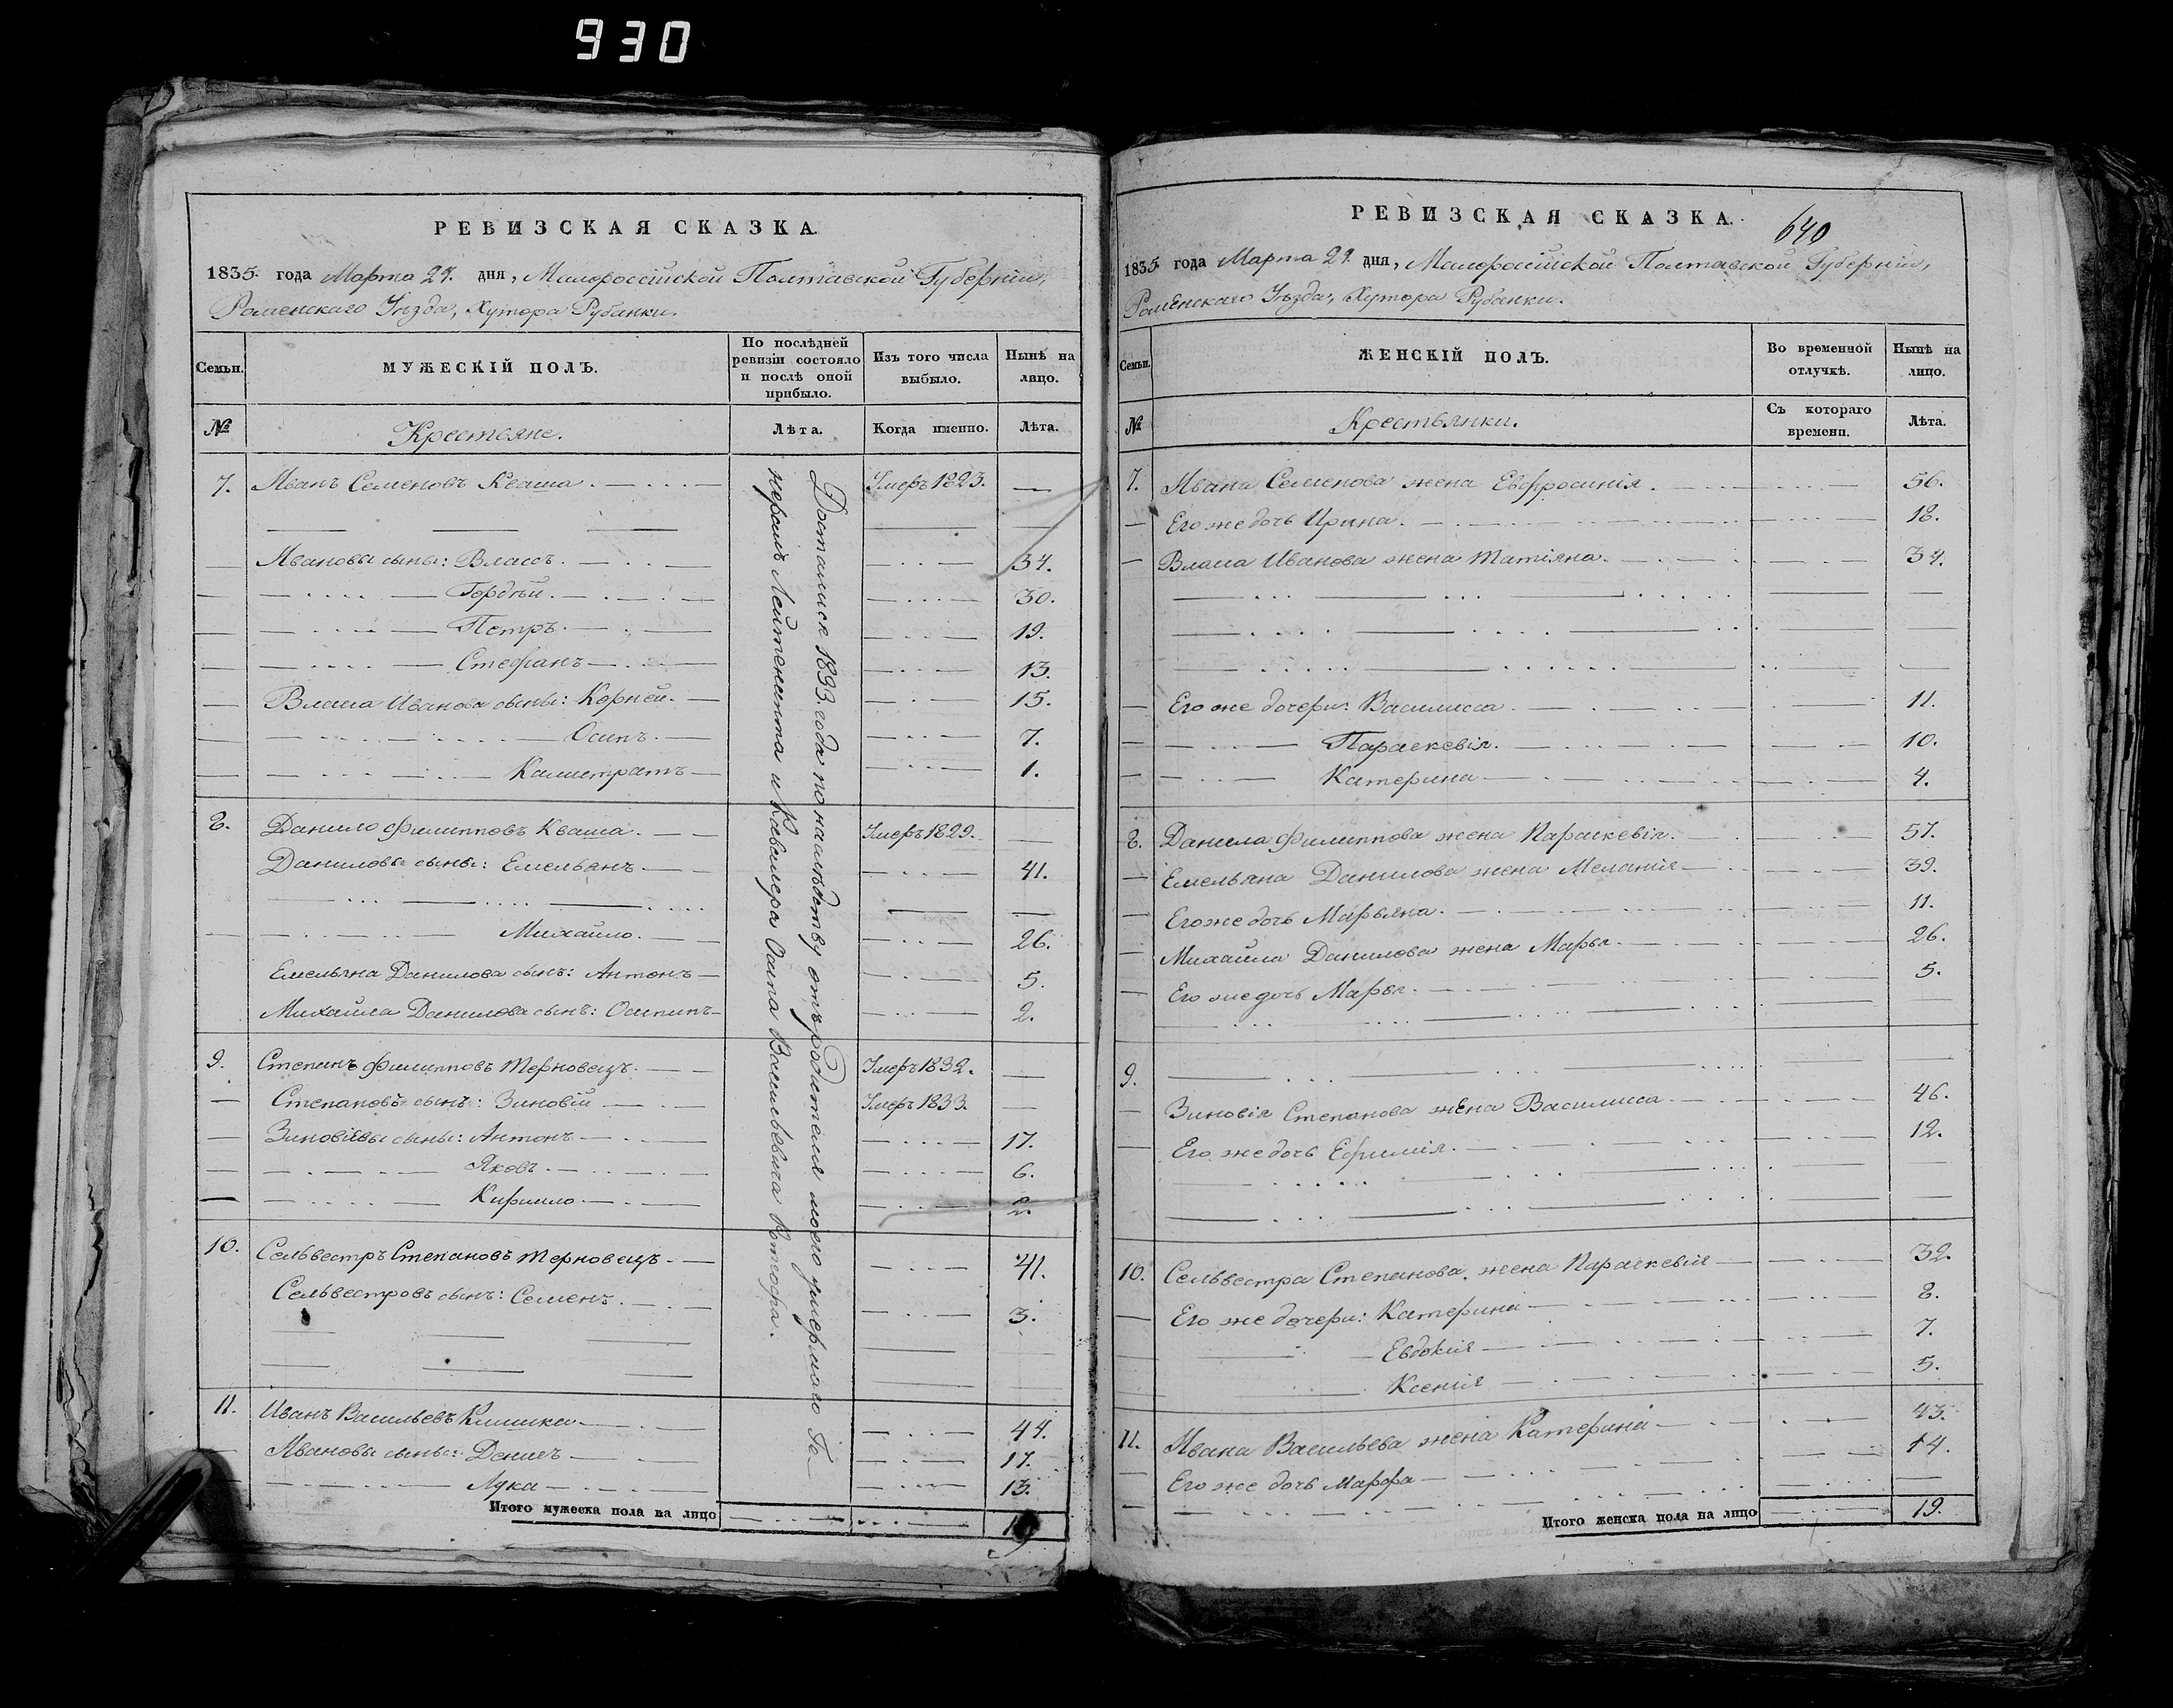 930
РЕВИЗСКАЯ СКАЗКА.
1835 года Марта 29. дня, Малороссійской Полтавской Губерніи,
Роменскаго Уѣзда, Хутора Рубанки.
Семьи.
МУЖЕСКІЙ ПОЛЪ.
По послѣдней ревизіи состояло и послѣ оной прибыло.
Изъ того числа выбыло.
Нынѣ на лицо.
№
Крестьяне.
Лѣта.
Когда именно.
Лѣта.
Достались 1833. года по наслѣдству отъ родителя моего умершаго Ге-
нералъ Лейтенанта и Кавалера Осипа Васильевича
7. Иванъ Семеновъ Кваша. Умеръ 1823. —
Ивановы сыны: Власъ. 34.
Гордѣй. 30.
Петръ. 19.
Стефанъ 13.
Власа Иванова сыны: Корнѣй. 15.
Осипъ. 7.
Калистратъ 1.
8. Данило Филипповъ Кваша. Умеръ 1829. —
Даниловы сыны: Емельянъ 41.
Михайло. 26.
Емельяна Данилова сынъ: Антонъ 5.
Михайла Данилова сынъ: Осипъ 2.
9. Степанъ Филипповъ Терновецъ. Умеръ 1832. —
Степановъ сынъ: Зиновій Умеръ 1833. —
Зиновіевы сыны: Антонъ 17.
Яковъ. 6.
Кирило. 2.
10. Сельвестръ Степановъ Терновецъ. 41.
Сельвестровъ сынъ: Семенъ. 3.
11. Иванъ Васильевъ Климка 44.
Ивановы сыны: Денисъ 17.
Лука 13.
Итого мужеска пола на лицо 19
РЕВИЗСКАЯ СКАЗКА.
640
1835 года Марта 29. дня, Малороссійской Полтавской Губерніи,
Роменскаго Уѣзда, Хутора Рубанки.
Семьи.
ЖЕНСКІЙ ПОЛЪ.
Во временной отлучкѣ.
Нынѣ на лицо.
№
Крестьянки.
Съ котораго времени.
Лѣта.
7. Ивана Семенова жена Евфросинія. 56.
Его же дочь Ирина. 18.
Власа Иванова жена Татіяна. 34.
Его же дочери: Василисса 11.
Параскевія. 10.
Катерина 4.
8. Данила Филиппова жена Параскевія. 57.
Емельяна Данилова жена Меланія 39.
Его же дочь Марьяна. 11.
Михайла Данилова жена Марья. 26.
Его же дочь Марья. 5.
9. —
Зиновія Степанова жена Василиса 46.
Его же дочь Ефимія. 12.
10. Сельвестра Степанова жена Параскевія 32.
Его же дочери: Катерина 8.
Евдокія 7.
Ксенія 5.
11. Ивана Васильева жена Катерина 43.
Его же дочь Марфа 14.
Итого женска пола на лицо 19.